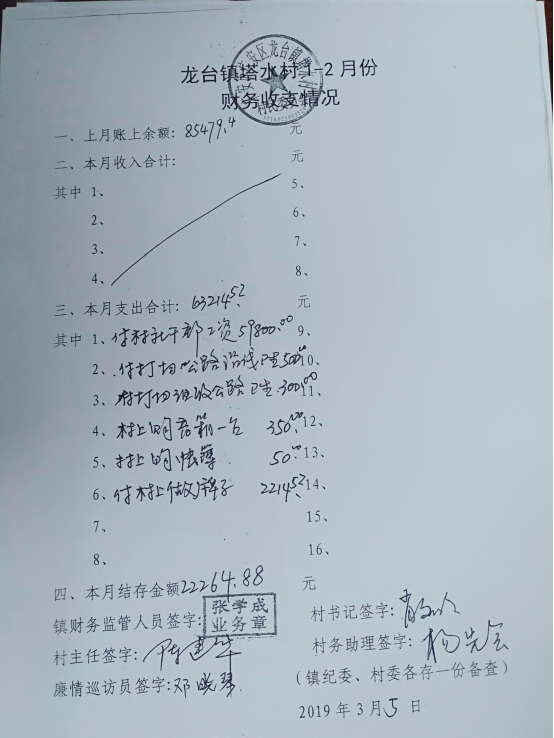 龙台镇塔水村1-2月份
财务收支情况
一、上月账上余额：85479.4 元
二、本月收入合计： 元
其中 1、 5、
2、 6、
3、 7、
4、 8、
三、本月支出合计：63214.52 元
其中 1、付村社干部工资59800.00 9、
2、付打扫公路沿线卫生500.00 10、
3、付打扫组级公路卫生300.00 11、
4、村上购音箱一台 350.00 12、
5、村上购帐薄 50.00 13、
6、付村上做牌子 2214.52 14、
7、 15、
8、 16、
四、本月结存金额22264.88 元
镇财务监管人员签字： 张学成 业务章
村书记签字：
村主任签字：
村务助理签字：
廉情巡访员签字：邓晓琴
（镇纪委、村委各存一份备查）
2019年3月5日